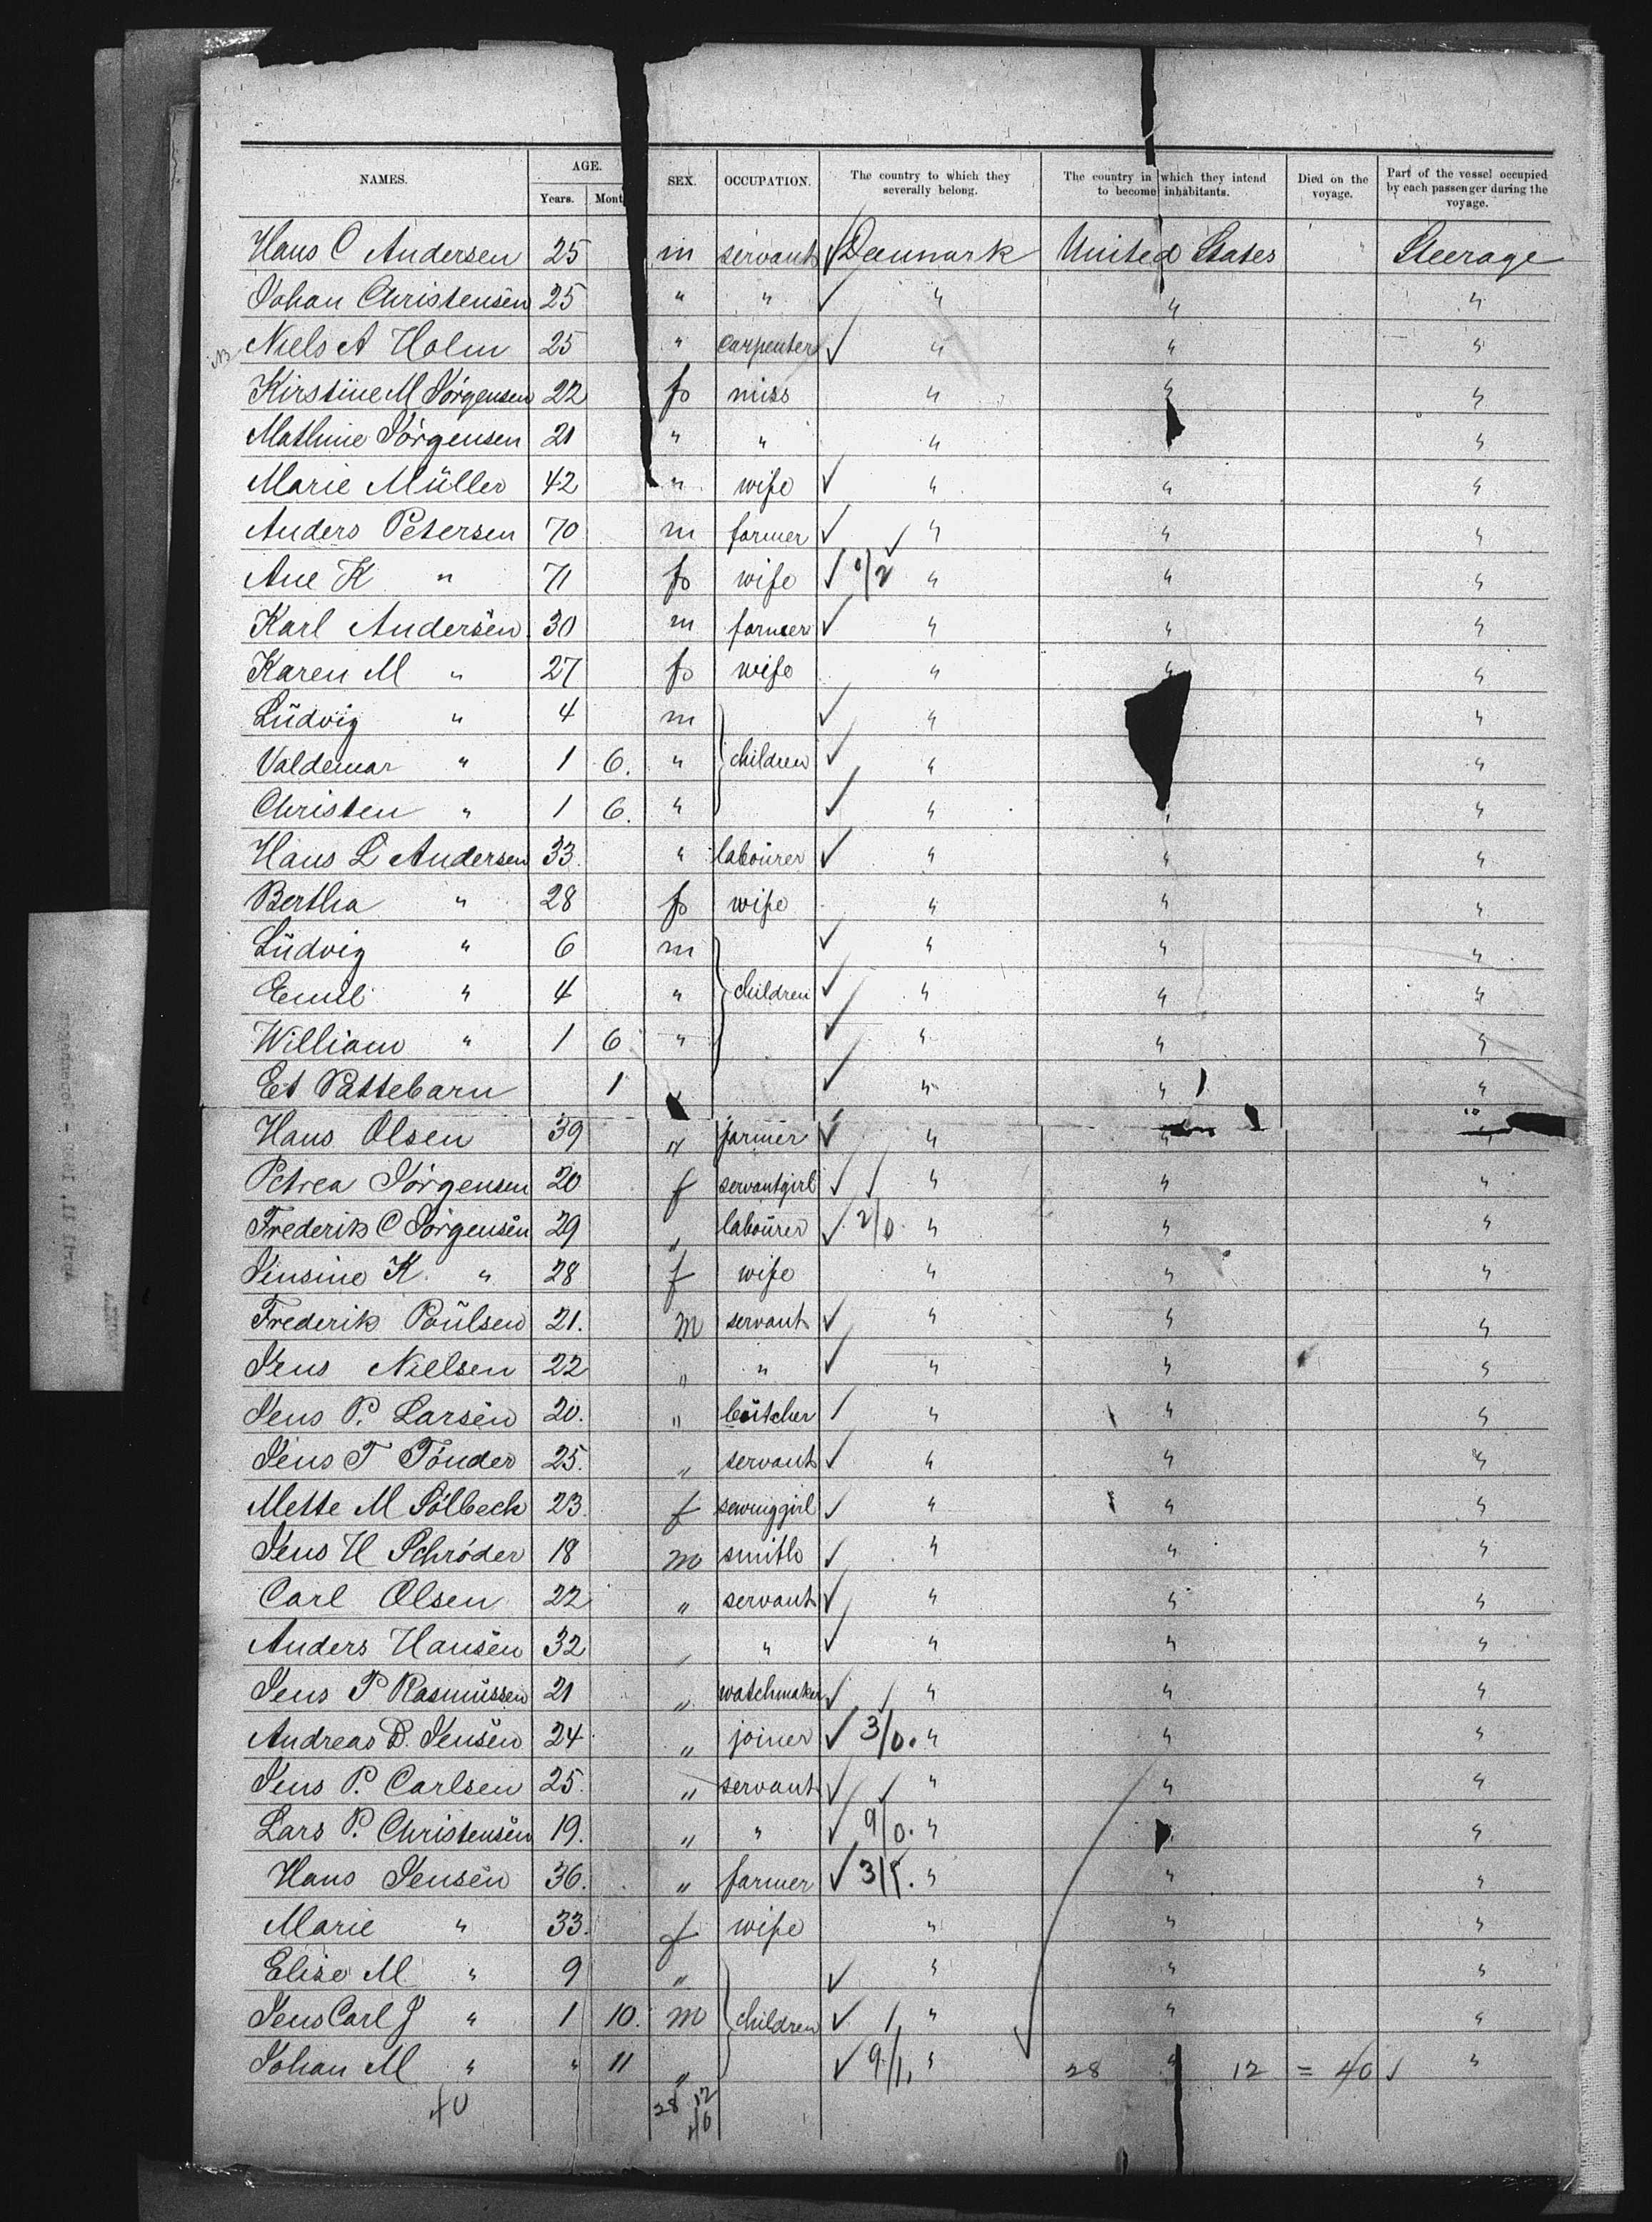 NAMES. AGE. SEX. OCCUPATION. The country to which they severally belong. The country in which they intend to become inhabitants. Died on the voyage. Part of the vessel occupied by each passenger during the voyage.
Years. Mont
Hans C Andersen 25 m servant Denmark United States Steerage
Johan Christensen 25 " " " " "
Niels A Holm 25 " carpenter " " "
Kirstine M Jörgensen 22 f miss " " "
Mathine Jörgensen 21 " " " "
Marie Müller 42 " wife " " "
Anders Petersen 70 m farmer " " "
Ane K " 71 f wife 0/2 " " "
Karl Andersen 30 m farmer " " "
Karen M " 27 f wife " " "
Ludvig " 4 m " "
Valdemar " 1 6. " children " "
Christen " 1 6. " " " "
Hans L Andersen 33. " labourer " " "
Bertha " 28 f wife " " "
Ludvig " 6 m " " "
Emil " 4 " children " " "
William " 1 6 " " " "
Et Pattebarn 1 " " " "
Hans Olsen 39 " farmer " " "
Petrea Jörgensen 20 f servantgirl " " "
Frederik C Jörgensen 29 " labourer 2/0 " " "
Sinsine K. " 28 f wife " " "
Frederik Poulsen 21. m servant " " "
Jens Nielsen 22 " " " " "
Jens P. Larsen 20. " butcher " " "
Jens T Tönder 25. " servant " " "
Mette M Sölbeck 23. f sewinggirl " " "
Jens H Schröder 18 m smith " " "
Carl Olsen 22 " servant " " "
Anders Hansen 32 " " " " "
Jens P Rasmussen 21 " watchmaker " " "
Andreas D. Jensen 24 " joiner 3/0. " " "
Jens P. Carlsen 25. " servant " " "
Lars P. Christensen 19. " " 9/0. " "
Hans Jensen 36. " farmer 3/1. " " "
Marie " 33. f wife " " "
Elise M " 9 " " " "
Jens Carl J " 1 10. m children " " "
Johan M " " 11 " 9/1, " 28 " 12 = 40 "
40 28 12
40